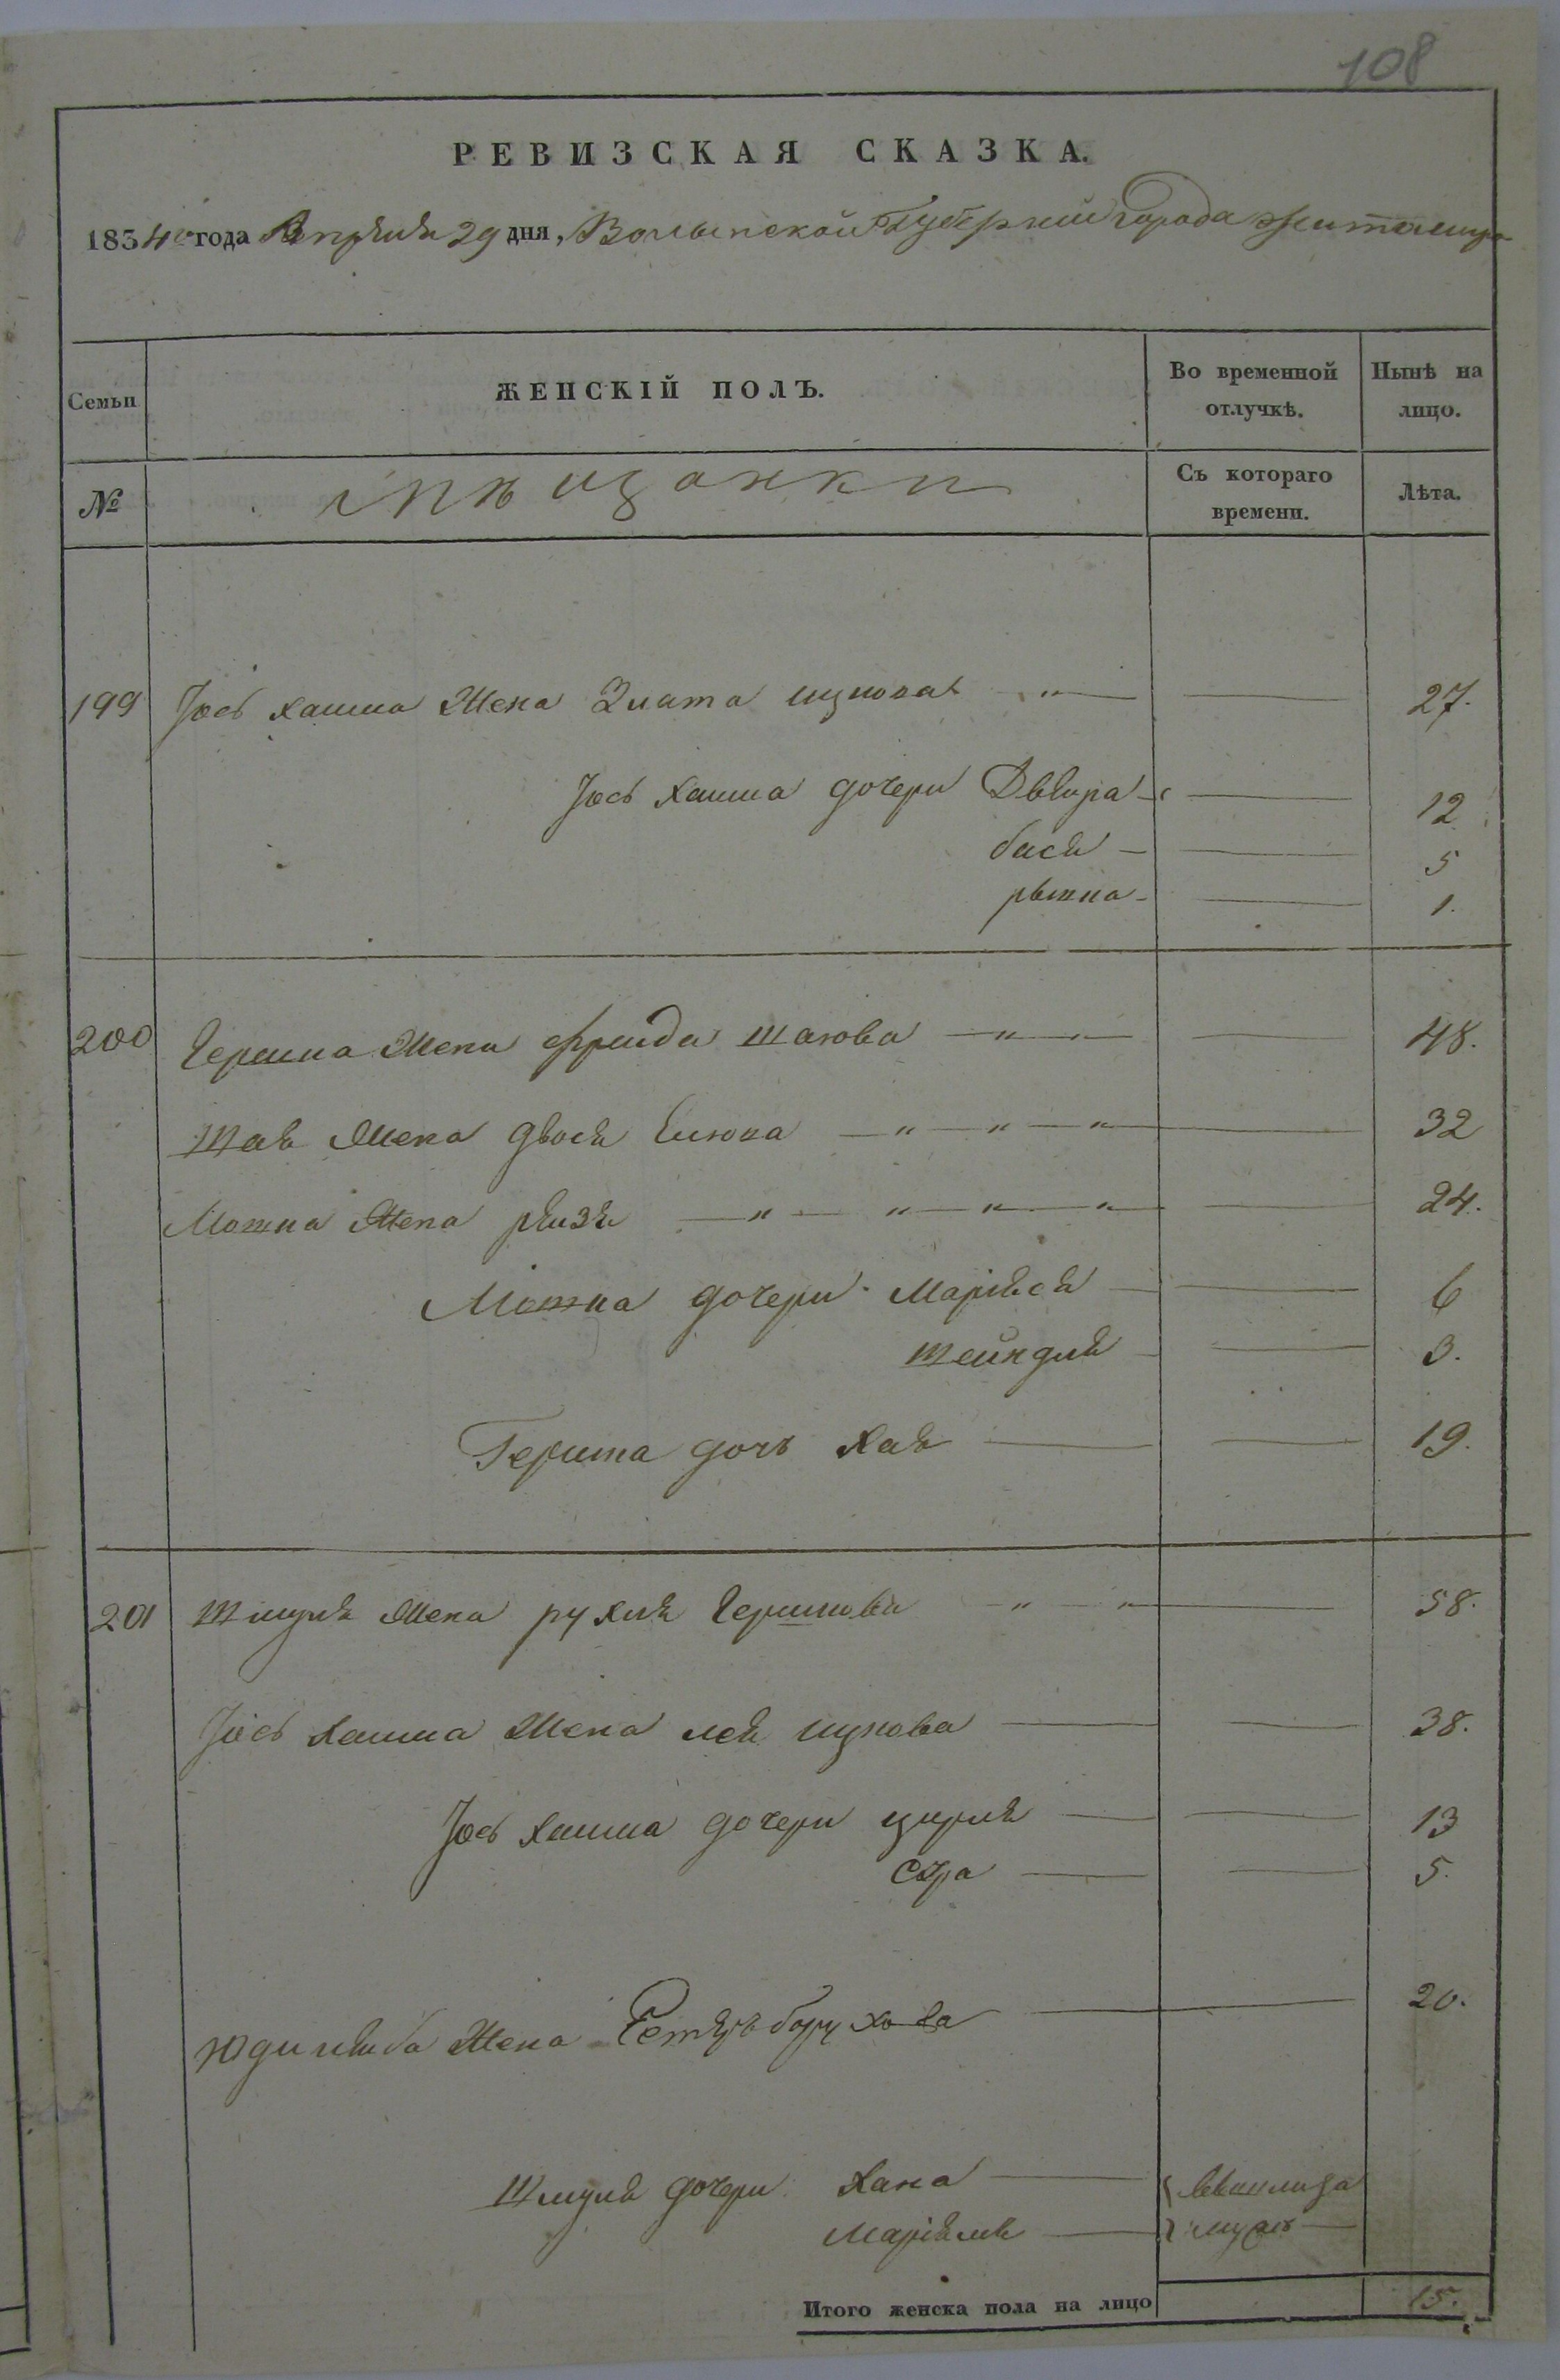 108
РЕВИЗСКАЯ СКАЗКА.
1834го года Апрѣля 29 дня, Волынской Губерніи города Житомира
Семьи
ЖЕНСКІЙ ПОЛЪ.
Во временной отлучкѣ.
Нынѣ на лицо.
№
мѣщанки
Съ котораго времени.
Лѣта.
199 Іось Хаима Жена Злата 27.
Іось Хаима дочери Двейра 12
бася 5
1.
200 Гершка Жена фрейда шаюва 48.
Шая Жена двося 32
Мошка Жена рейзя 24.
Мошка дочери Маріяся 6
шейндля 3.
Гершка дочь Хая 19.
201 Шмуля Жена рухля Гершкова 58.
Іось Хаима Жена лея ицкова 38.
Іось Хаима дочери цирля 13
Сура 5.
Юдилейба Жена Естеръ борухова 20.
Шмуля дочери Хана
Маріямъ
Итого женска пола на лицо 15.